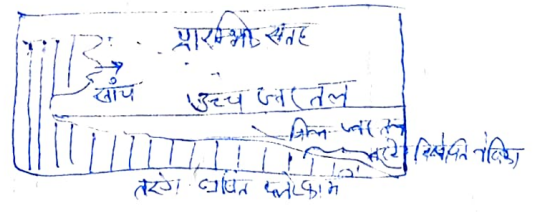 प्रारम्भिक सतह
खाँच
उच्च ज्वार तल
निम्न ज्वार तल
तरंग निक्षेपित वेदिका
तरंग घर्षित प्लेटफार्म